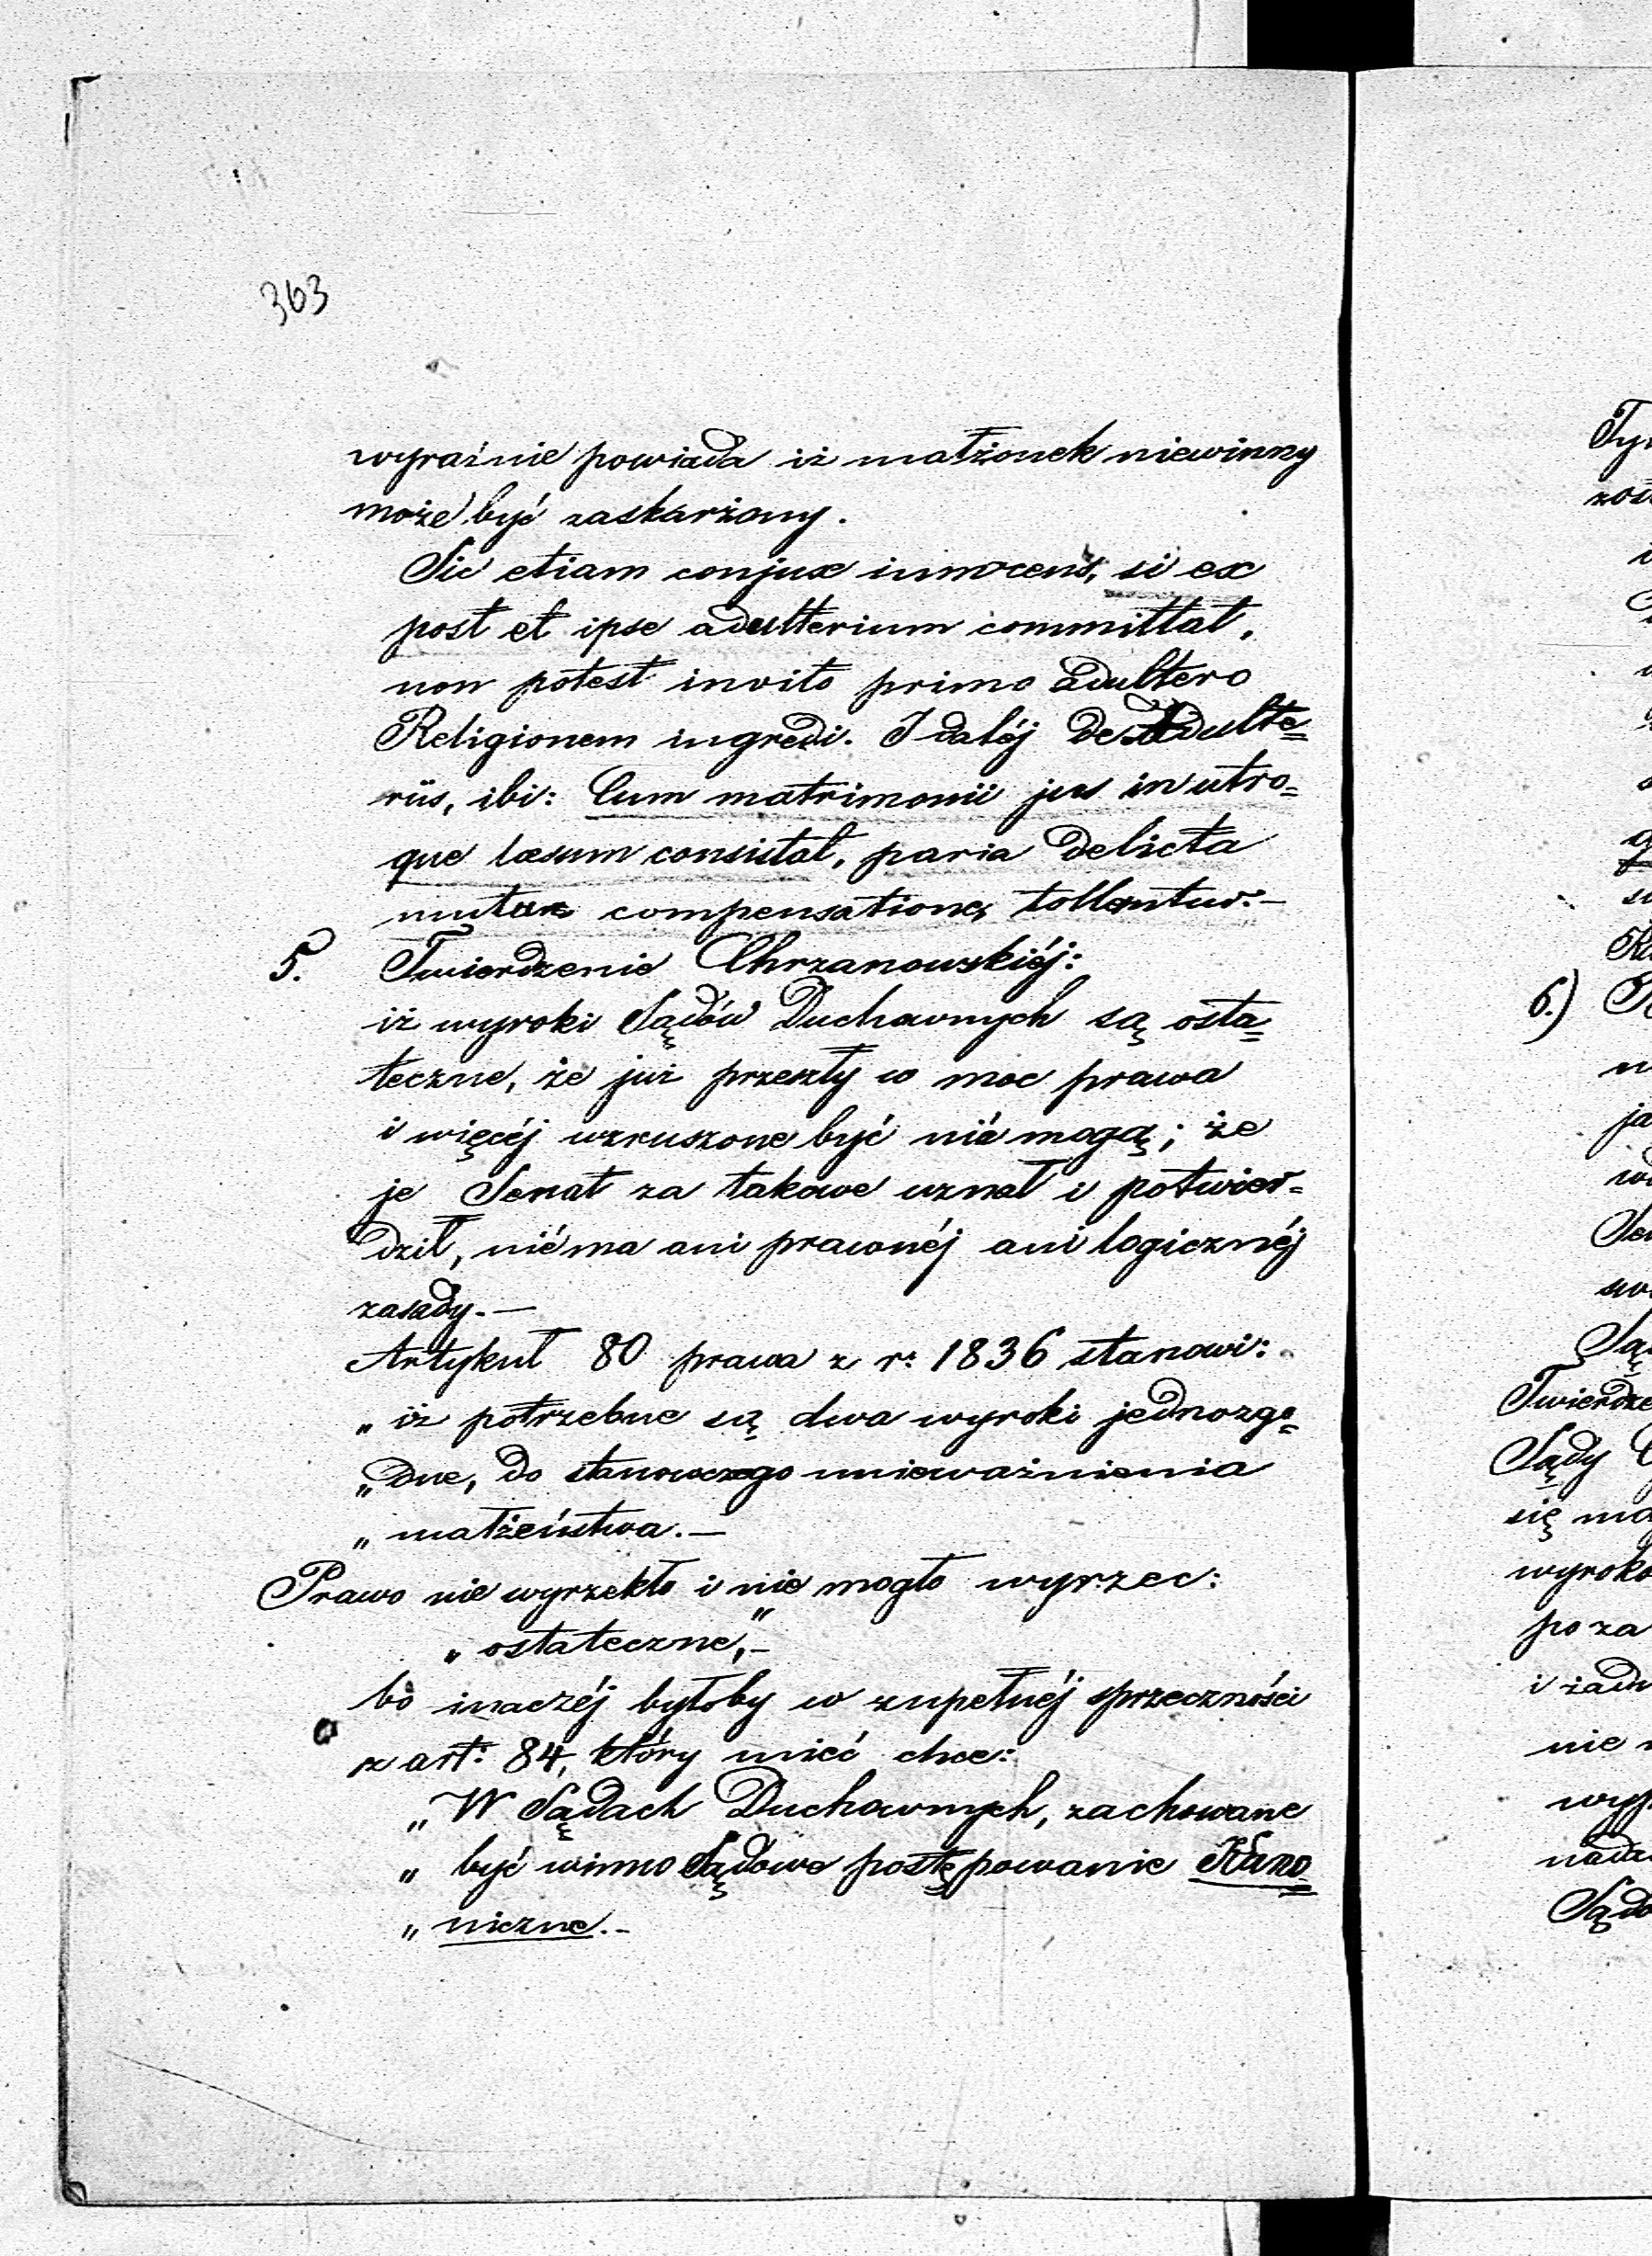 363
wyraźnie powiada iż małżonek niewinny
może być zaskarżony.
Sic etiam conjux innocens, si ex
post et ipse adulterium committat,
non potest invito primo adultero
Religionem ingredi. I daléj de Adulte=
riis, ibi: Cum matrimonii jus in utro=
que læsum consistat, paria delicta
mutua compensatione, tolluntur.—
5. Twierdzenie Chrzanowskiéj:
iż wyroki Sądów Duchownych są osta=
teczne, że już przeszły w moc prawa
i więcéj wzruszone być nié mogą; że
je Senat za takowe uznał i potwier=
dził, niéma ani prawnéj ani logicznéj
zasady.—
Artykuł 80 prawa z r: 1836 stanowi:
„ iż potrzebne są dwa wyroki jednozgo=
„ dne, do stanowczego unieważnienia
„ małżeństwa.—
Prawo nie wyrzekło i nie mogło wyrzec:
„ ostateczne,"—
bo inaczéj byłoby w zupełnéj sprzeczności
z art: 84, który mieć chce:
„ W Sądach Duchownych, zachowane
„ być winno Sądowe postępowanie Kano=
„ niczne.—
Tyr
6.)
ja
Twierdze
Sądy
się
wyrok
po za
i żadn
nie
Sądo